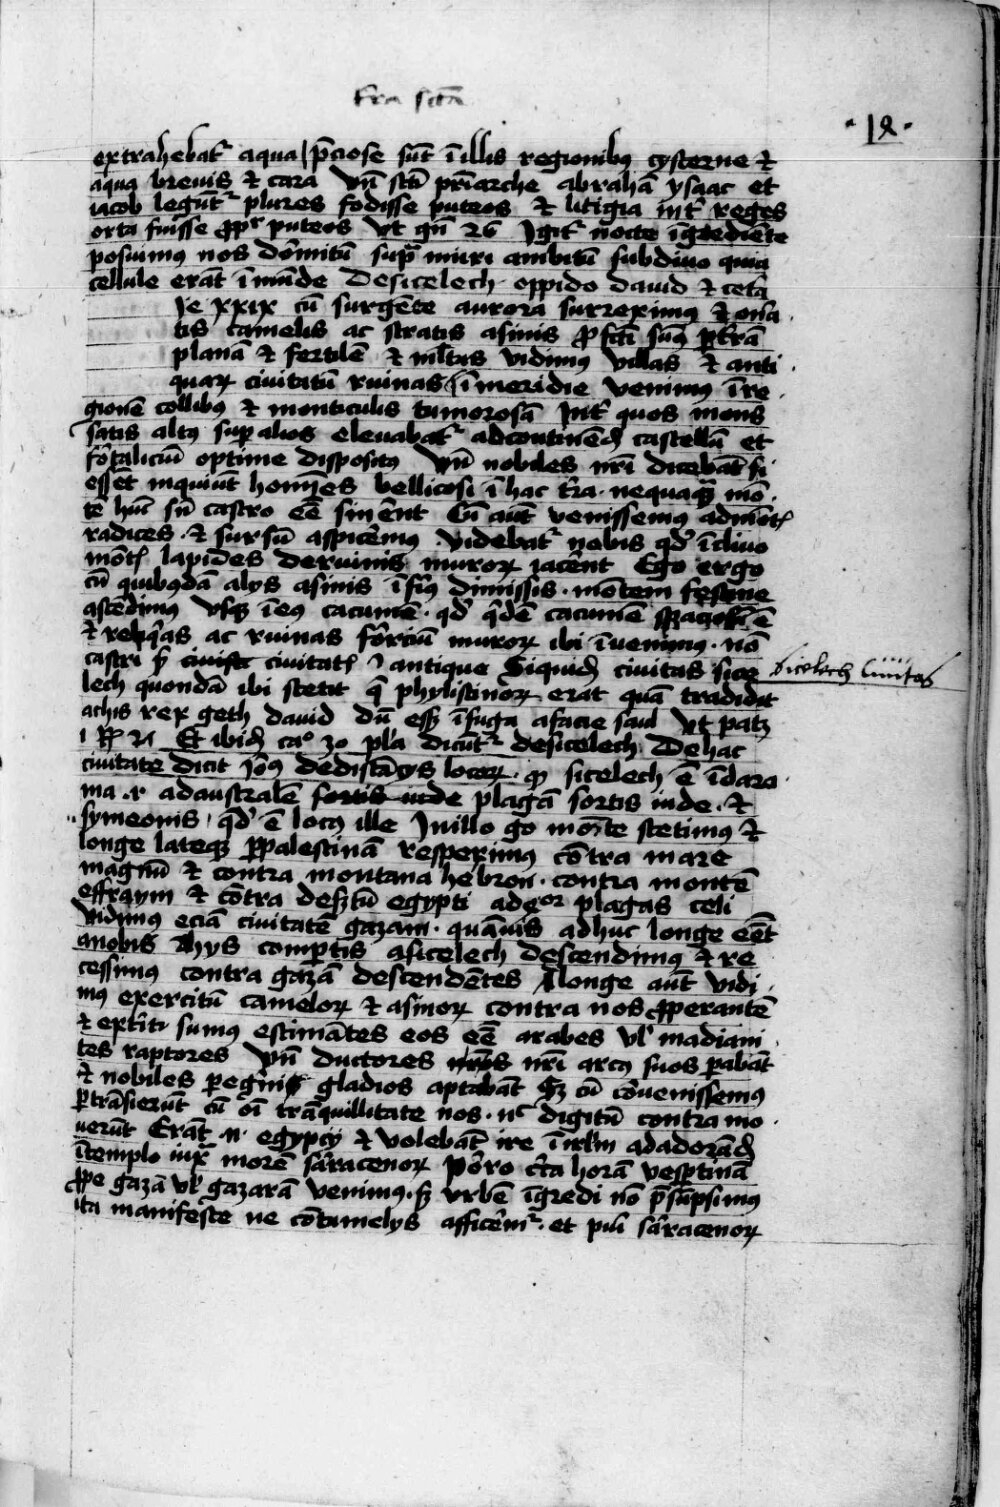 t̄ra sctā
·12·
extrahebat᷑ aqua p̄ciose sūt ī illis regionibꝰ cysterne et
aqua brevis et cara Vn̄ scti pr̄iarche abrahā ysaac et
iacob legūt᷑ plures fodisse puteos et litigia int᷑ reges
orta fuisse ꝓpt᷑ puteos Vt gn̄ 26 Igit᷑ nocte īgrediēte
posuimus nos dormitū supra muri ambitū subdivo quia
cellule erāt īmūde De sicelech oppido david et cet̄a
Ie xxix cū surgēte aurora surreximus et on̄a
tis camelis ac stratis asinis ꝓfcti sumꝰ per t̄rā
planā et fertilē et ml̄tas vidimus villas et anti
quaꝝ civitatū ruinas ī meridie venimus ī re
gionē collibꝰ et monticulis tumorosā Int᷑ quos mons
satis altꝰ sup alios elevabat᷑ ad continēdū castellū et
fortaliciū optime dispositꝰ Vn̄ nobiles nr̄i dicebāt si
essēt inquiūt homines bellicosi ī hac t̄ra nequaquā mō
tē hūc sn̄ castro eē sinerent Cū aūt venissemus ad mōtꝭ
radices et sursū aspicemus videbat᷑ nobis qd̓ ī clivo
mōtꝭ lapides de ruinis muroꝝ iacērent Ego ergo
cū quibusdā alys asinis ī fīꝰ dimissis montem festine
ascēdimus usqꝫ ī eiꝰ cacumē qd̓ qdē cacumē spaciosū ē
et reliqas ac ruinas forciū muroꝝ ibi ī venimus nō
castri s civitatꝭ antique Siquidē civitas sice
Sicelech Civitas
lech quondā ibi stetit q̄ phylistinoꝝ erat quā tradidit
achis rex geth david dū essꝫ ī fuga a facie saul Vt patꝫ
1 Rꝝ 27 Et ibidē caᵒ 30 pl̄a dicūt᷑ de sicelech De hac
civitate dicit Iōꝰ de distācys locoꝝ qꝫ sicelech ē ī daro
ma ad australē plagā sortis iude et
symeonis qd̓ ē locꝰ ille In illo gͦ mōte stetimus et
longe lateqꝫ ꝑ palestinā respeximus cōtra mare
magnū et contra montana hebron contra montē
effraym et cōtra desertū egypti ad qᵗᵒʳ plagas celi
Vidimus eciā civitatē gazam quāvis adhuc longe eēt
a nobis Hys comptis a sicelech descendimus et re
cessimus contra gazā descendētes A longe aūt vidi
mus exercitū cameloꝝ et asinoꝝ contra nos ꝓperantē
et extiti sumus estimātes eos eē arabes vl̓ madiani
tes raptores Vn̄ ductores nr̄i arcꝰ suos parabāt
et nobiles peg̊ni gladios aptabāt sꝫ cū cōvenissemus
ꝑtrāsierūt cū oī trāquillitate nos nec digitū contra mo
verūt Erāt n̄ egypcy et volebāt ire ī irl̄m ad adorādū
ī templo iux̄ morē saracenoꝝ Porro circa horā vesptinā
ꝓpe gazā vl̓ gazarā venimus sꝫ urbē īgredi nō p̄sūpsimus
ita manifeste ne cōtumelys afficeremur et saracenoꝝ